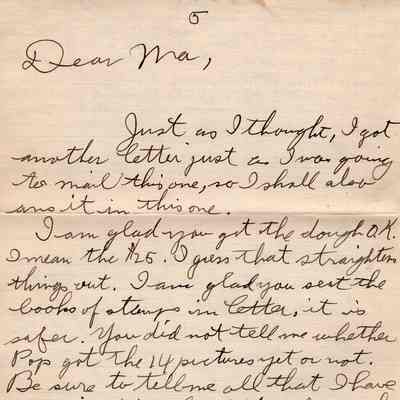 5
Dear Ma,
Just as I thought, I got
another letter just as I was going
to mail this one, so I shall also
ans it in this one.
I am glad you got the dough O.K.
I mean the $25. I guess that straightens
things out. I am glad you sent the
books of stamps in letter, it is
safer. You did not tell me whather
Pop got the 14 pictures yet or not.
Be sure to tell me all that I have